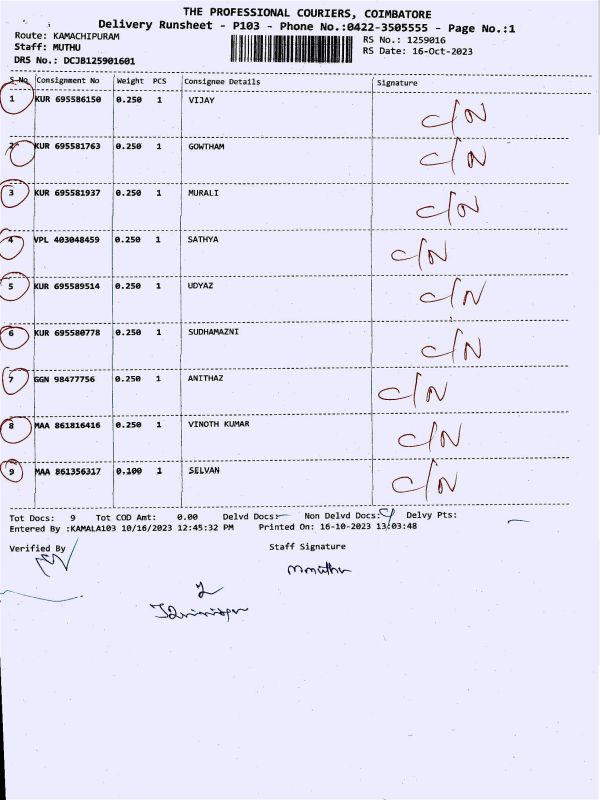 THE PROFESSIONAL COURIERS, COIMBATORE
Delivery Runsheet - P103 - Phone No.:0422-3505555 - Page No.:1
Route: KAMACHIPURAM RS No.: 1259016
Staff: MUTHU RS Date: 16-Oct-2023
DRS No.: DCJB125901601
S No Consignment No Weight PCS Consignee Details Signature
1 KUR 695586150 0.250 1 VIJAY C/N
2 KUR 695581763 0.250 1 GOWTHAM C/N
3 KUR 695581937 0.250 1 MURALI C/N
4 VPL 403048459 0.250 1 SATHYA C/N
5 KUR 695589514 0.250 1 UDYAZ C/N
6 KUR 695580778 0.250 1 SUDHAMAZNI C/N
7 GGN 98477756 0.250 1 ANITHAZ C/N
8 MAA 861816416 0.250 1 VINOTH KUMAR C/N
9 MAA 861356317 0.100 1 SELVAN C/N
Tot Docs: 9 Tot COD Amt: 0.00 Delvd Docs:— Non Delvd Docs:9 Delvy Pts:
Entered By :KAMALA103 10/16/2023 12:45:32 PM Printed On: 16-10-2023 13:03:48
Verified By Staff Signature
mmuthu